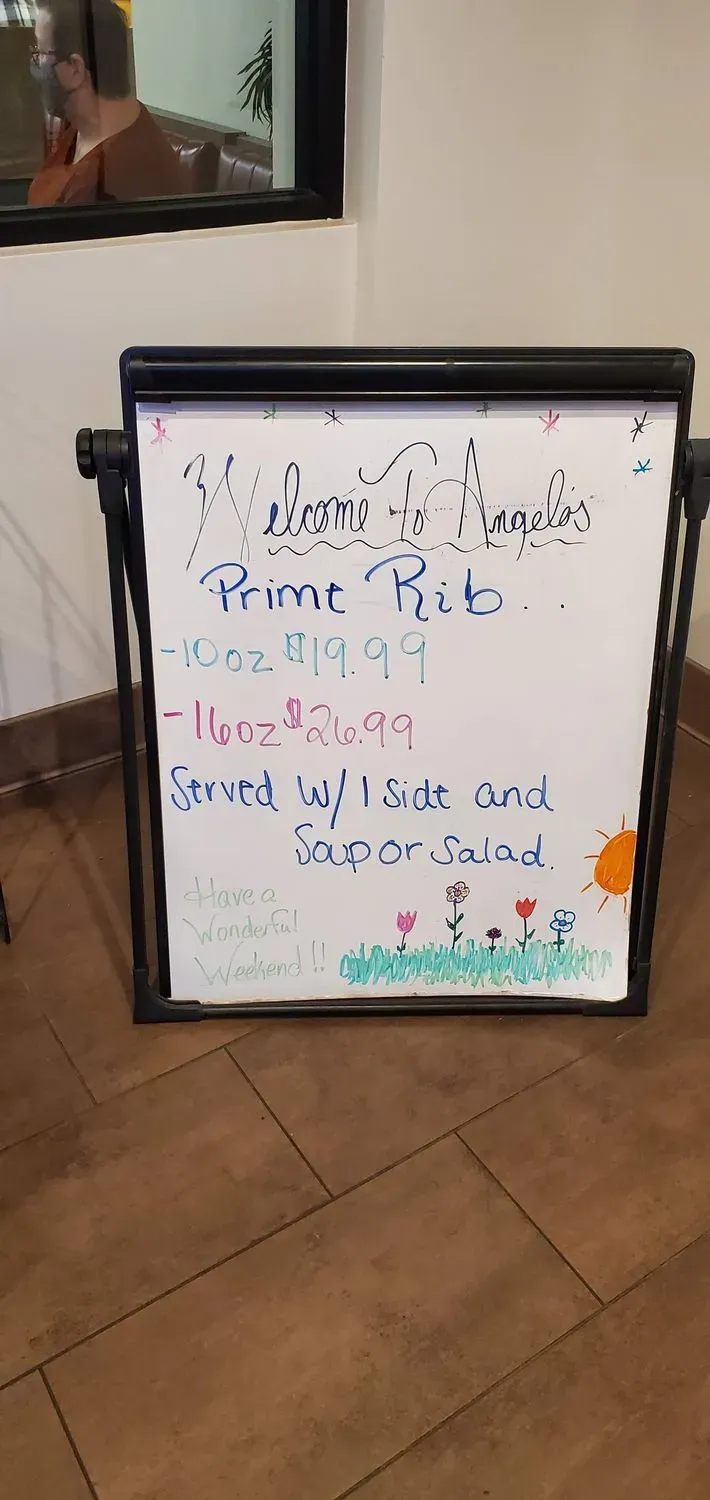 Welcome To Angelo's
Prime Rib . .
-10oz $19.99
-16oz $26.99
Served W/ 1 side and
Soup or Salad.
Have a
Wonderful
Weekend!!